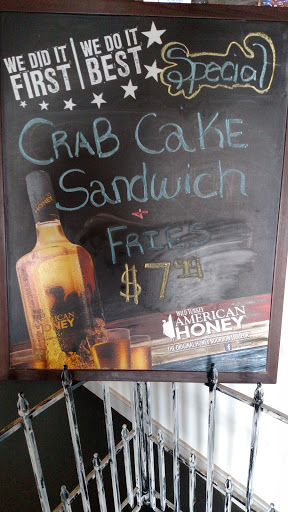 WE DID IT FIRST | WE DO IT BEST
Special
CRAB CAKE
Sandwich
+
FRIES
$7.99
HONEY
WILD TURKEY
AMERICAN
HONEY
THE ORIGINAL HONEY BOURBON LIQUEUR